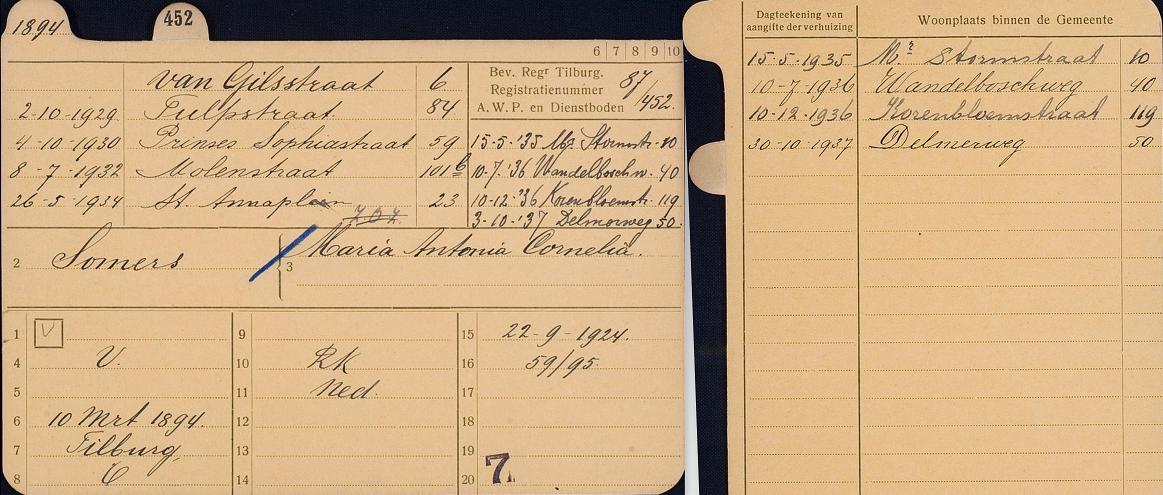 1894
452
6 7 8 9 10
van Gilsstraat 6
2-10-1929 Tulpstraat 84
4-10-1930 Prinses Sophiastraat 59
8-7-1932 Molenstraat 101b
26-5-1934 St. Annaplein 23
Bev. Regr Tilburg. 87
Registratienummer
A.W.P. en Dienstboden /452.
15-5-'35 Mr. Stormstr. 10
10-7-'36 Wandelboschw. 40
10-12-'36 Korenbloemstr. 119
3-10-'37 Delmerweg 50.
2 Somers
3 Maria Antonia Cornelia.
1 V
4 V.
5
6 10 Mrt 1894.
7 Tilburg
8
9
10 RK
11 Ned.
12
13
14
15 22-9-1924.
16 59/95.
17
18
19
20 7.
Dagteekening van aangifte der verhuizing
Woonplaats binnen de Gemeente
15-5-1935 Mr. Stormstraat 10
10-7-1936 Wandelboschweg 40
10-12-1936 Korenbloemstraat 119
30-10-1937 Delmerweg 50